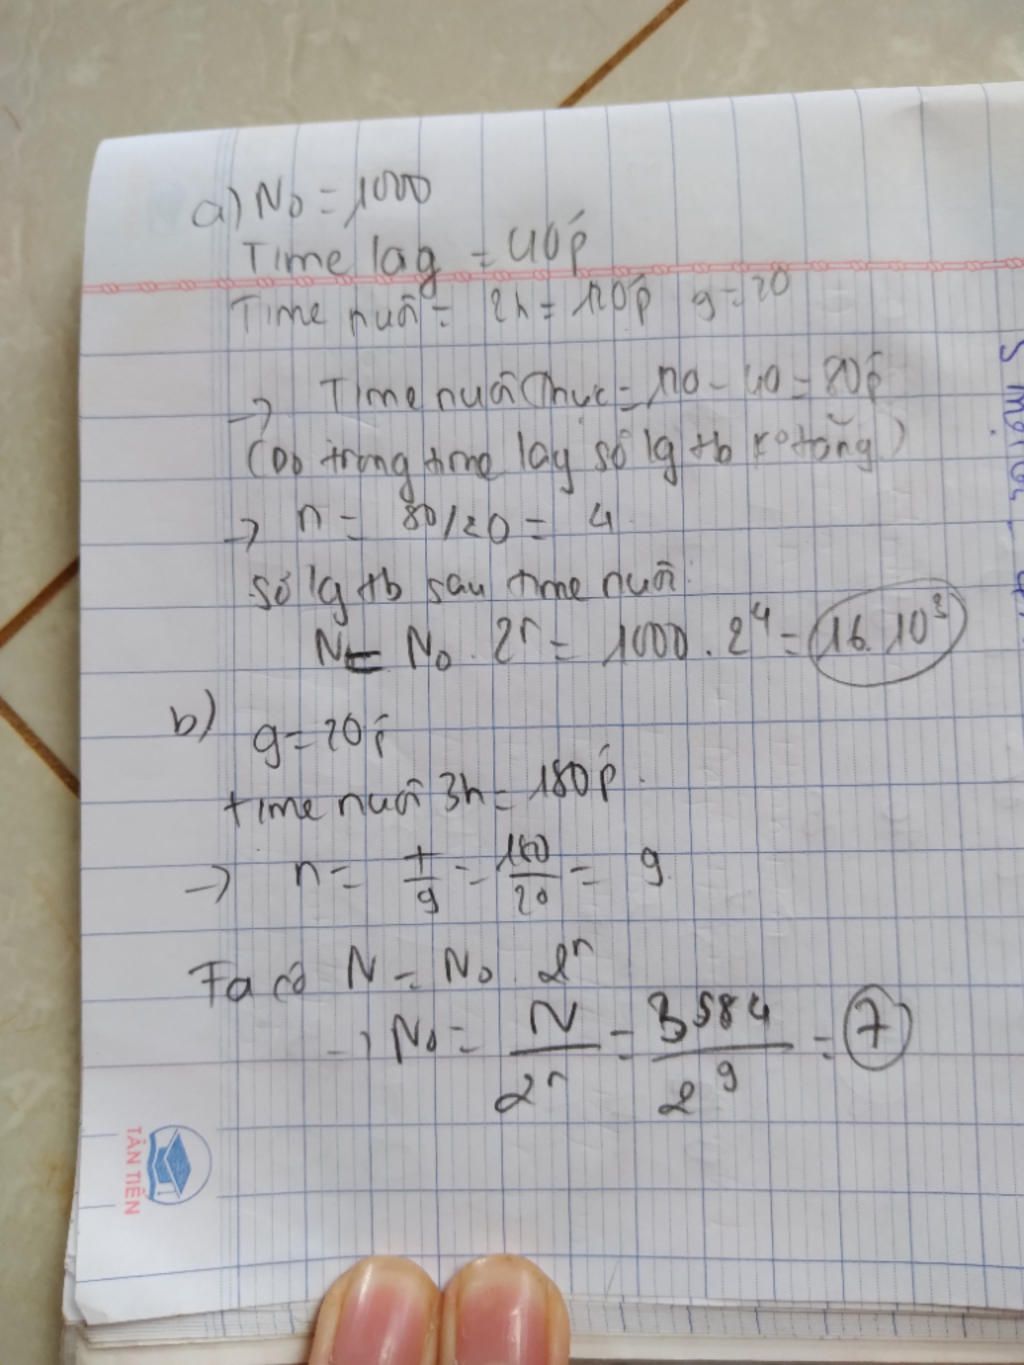 a) N₀ = 1000
Time lag = 40p'
Time nuôi = 2h = 120p' g = 20
→ Time nuôi thực = 120 - 40 = 80p'
(Do trong time lag số lg tb ko tăng)
→ n = 80/20 = 4
Số lg tb sau time nuôi:
Nt = N₀ . 2ⁿ = 1000 . 2⁴ = 16.10³
b) g = 20p'
time nuôi 3h = 180p'
→ n = t/g = 180/20 = 9
Ta có N = N₀ . 2ⁿ
→ N₀ = N/2ⁿ = 3584/2⁹ = 7
TÂN TIẾN